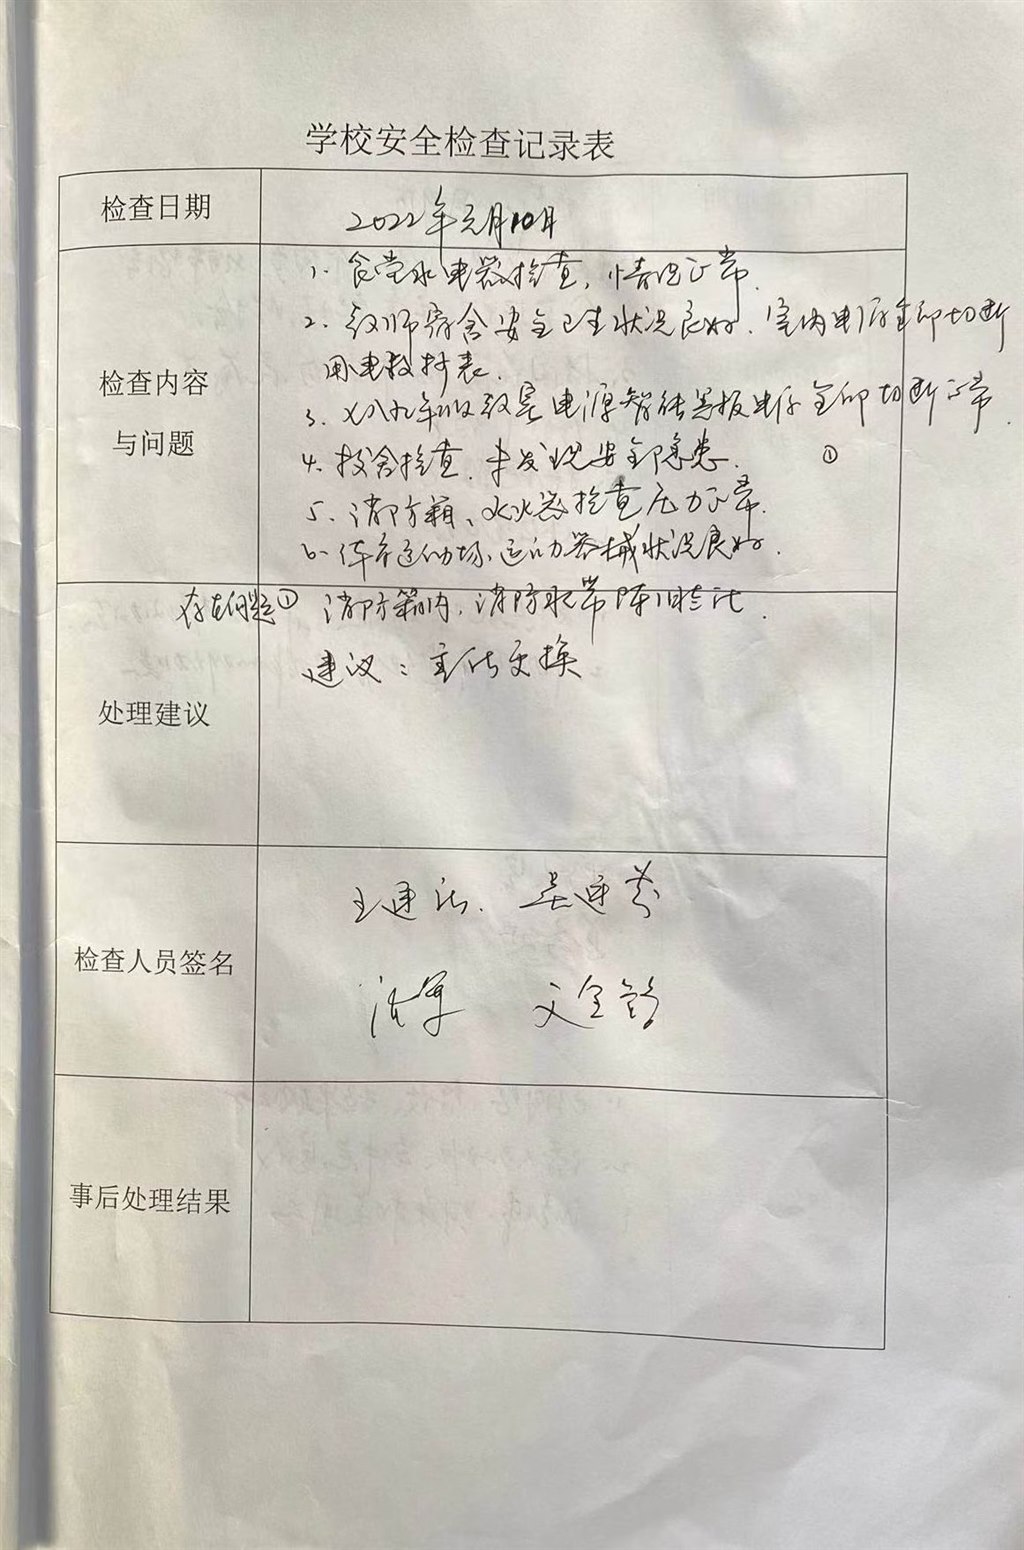 学校安全检查记录表
检查日期
2022年元月10日
检查内容
与问题
1. 食堂水电器检查，情况正常.
2. 教师宿舍安全卫生状况良好. 室内电源全部切断
用电数抄表.
3. 七八九年级教室电源智能黑板电源全部切断正常.
4. 校舍检查. 未发现安全隐患. ①
5. 消防箱、灭火器检查压力正常.
6. 体育运动场、运动器械状况良好.
处理建议
存在问题① 消防箱内, 消防水带陈旧老化.
建议：更换
检查人员签名
王建
文全
事后处理结果